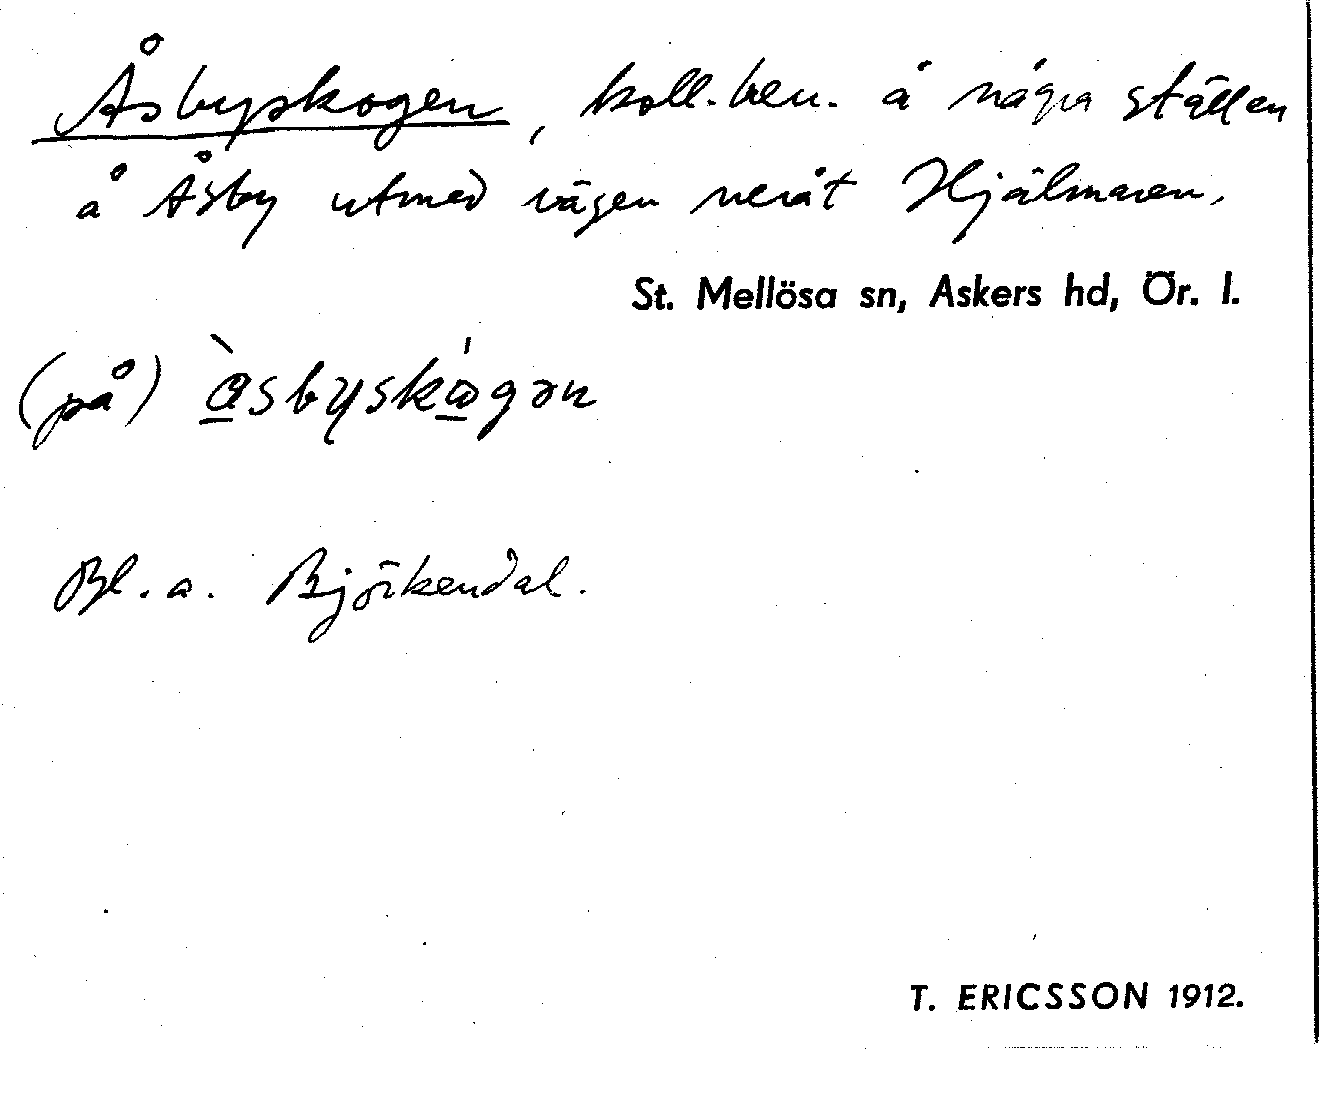 Åsbyskogen, koll. ben. å några ställen
å Åsby utmed vägen neråt Hjälmaren.
St. Mellösa sn, Askers hd, Ör. l.
(på) àsbyskógən
Bl. a. Björkendal.
T. ERICSSON 1912.